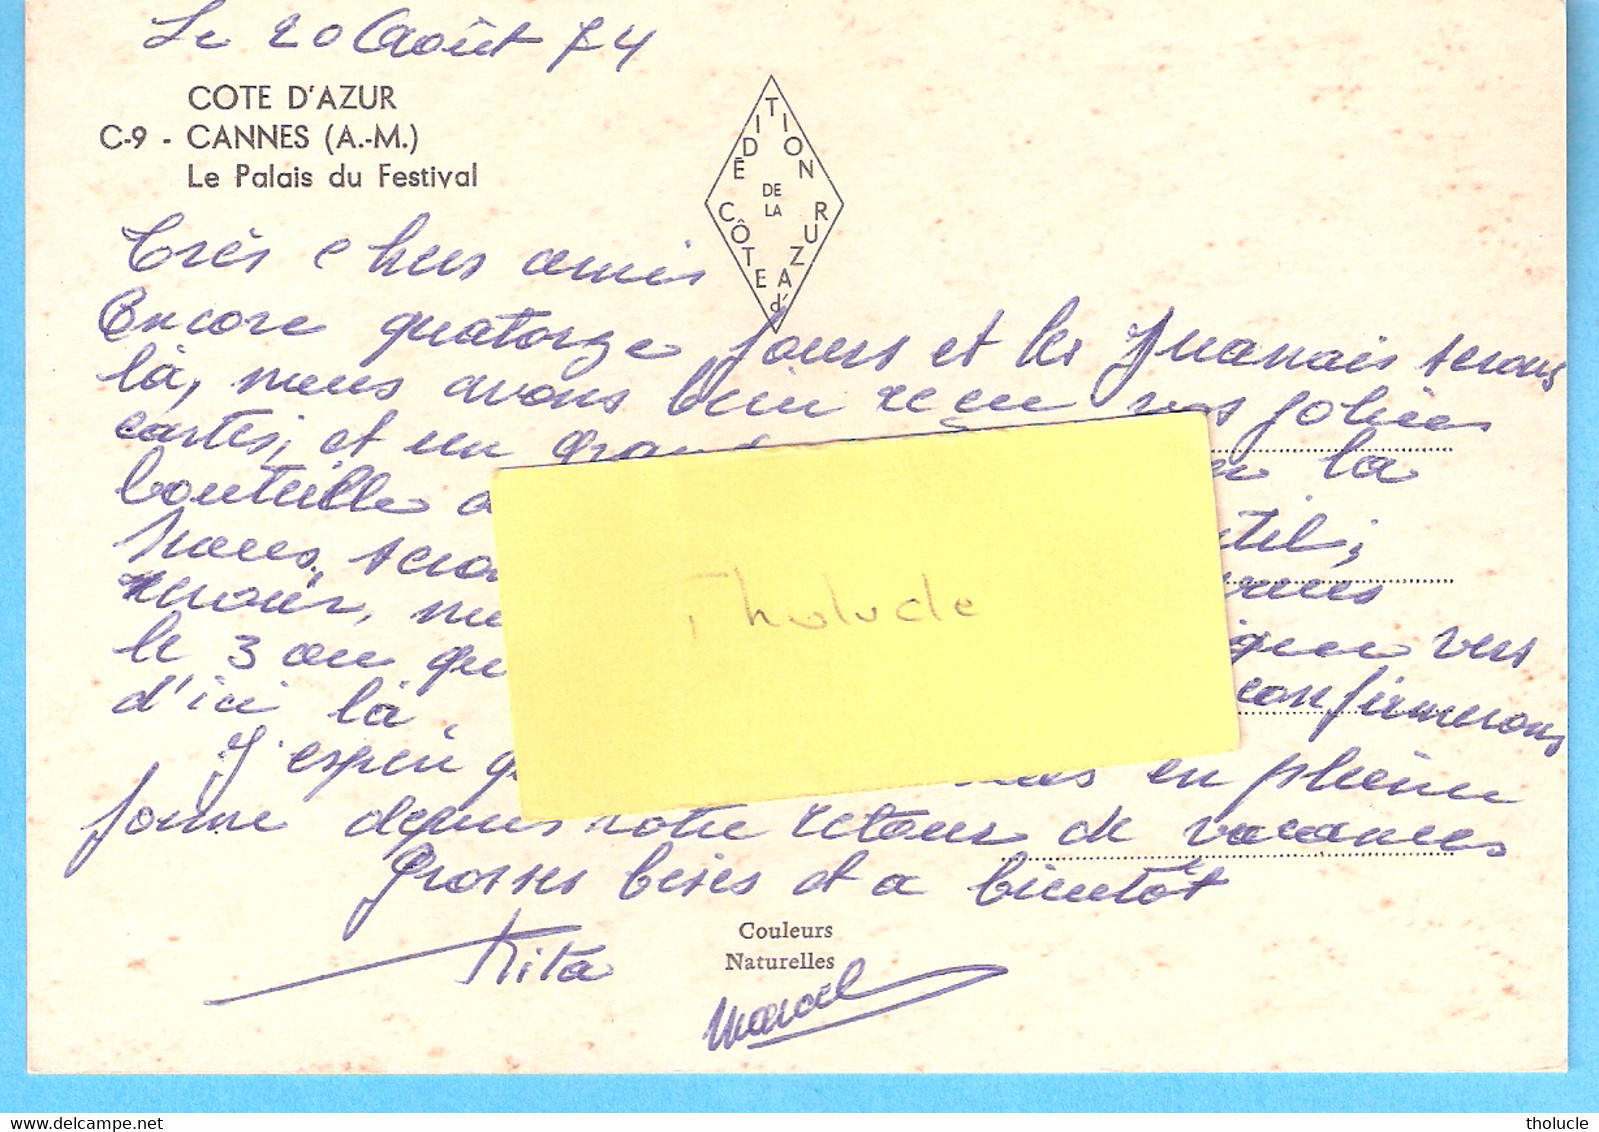 Le 20 Août 74
COTE D'AZUR
C-9 - CANNES (A.-M.)
Le Palais du Festival
ÉDITION
DE
LA
CÔTE d'AZUR
Très chers amis
Encore quatorze jours et les Juanais serons
là, nous avons bien reçu vos jolies
cartes, et un grand la
bouteille
Nous, serons
revoir,
le 3 au vers
d'ici là, confirmerons
J'espère en pleine
forme depuis votre retour de vacances
Grosses bises et a bientôt
Rita
Couleurs
Naturelles
Marcel
Tholucle
www.delcampe.net
tholucle